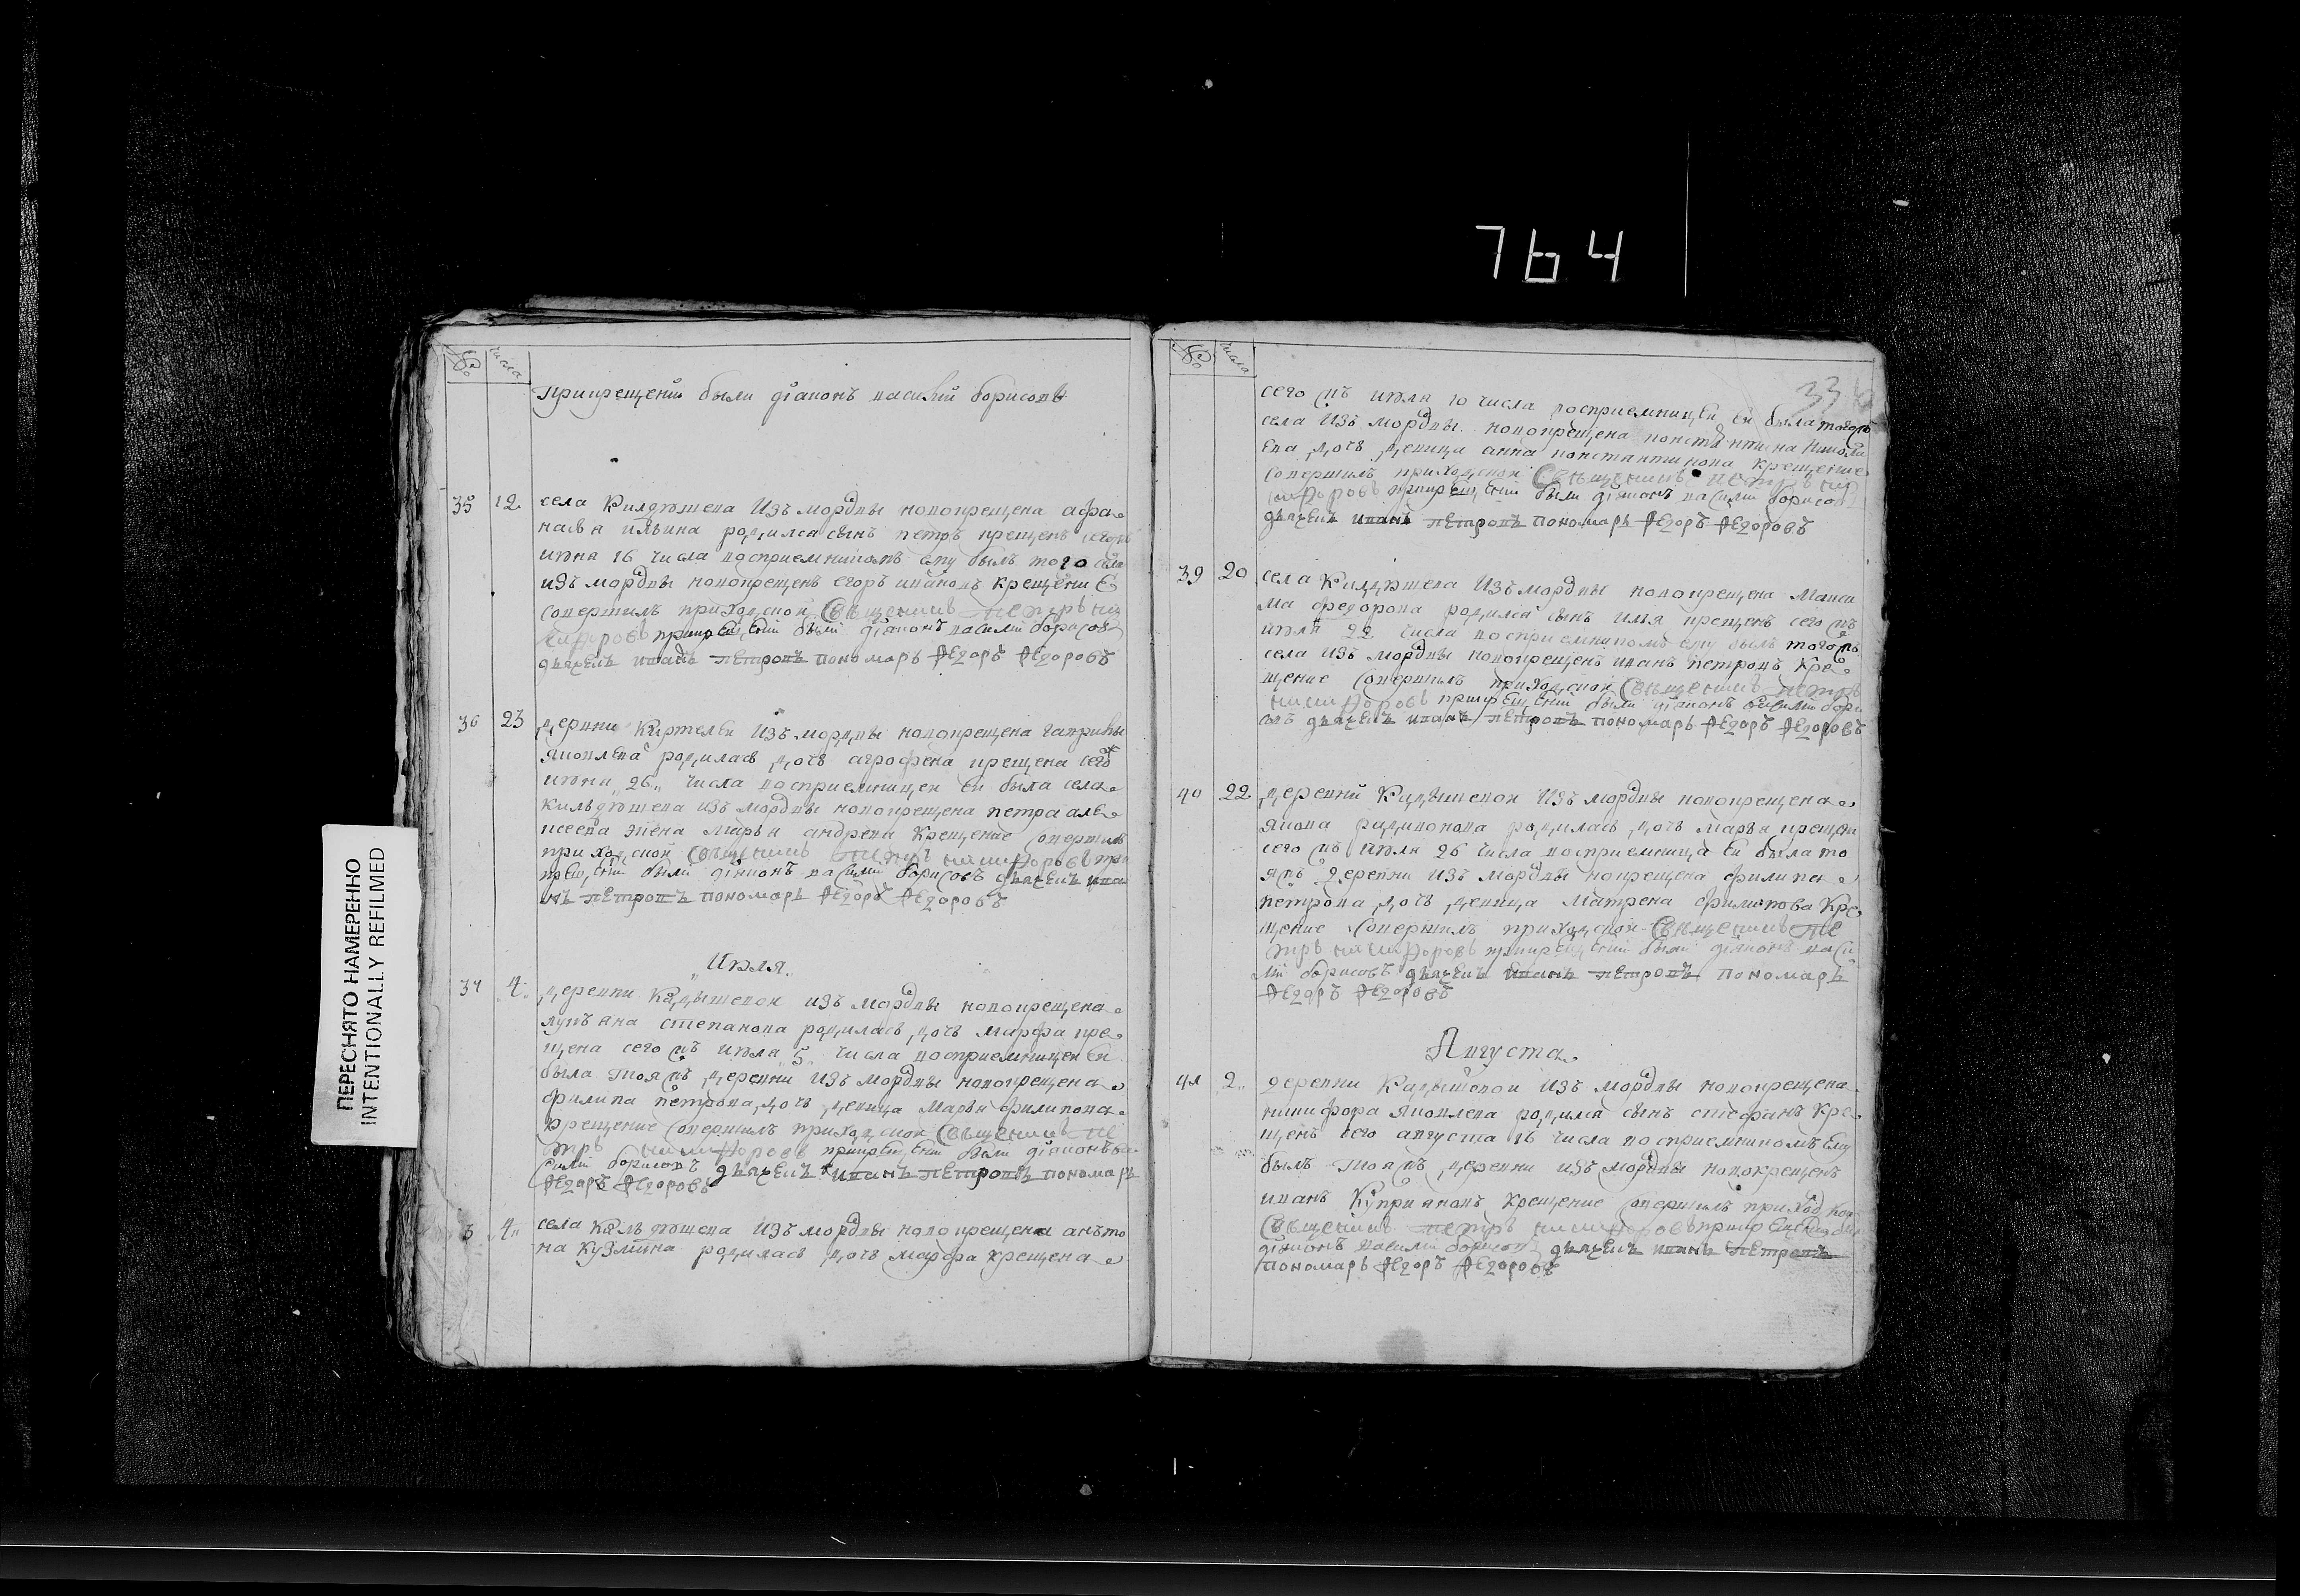 764
ПЕРЕСНЯТО НАМЕРЕННО
INTENTIONALLY REFILMED
№ числа
При крещении были діаконъ василий борисовъ
35 12 села Килдюшева Изъ мордвы новокрещена афа
насья ильина родился сынъ петръ крещенъ сегожъ
июня 16 числа восприемникомъ ему былъ того села
изъ мордвы новокрещенъ егоръ ивановъ крещение
совершилъ приходской Священникъ петръ ни
кифоровъ при крещении были діаконъ василий борисовъ
дьячекъ иванъ петровъ пономарь Федоръ Федоровъ
36 23 деревни Киртели изъ мордвы новокрещена гаврилы
яковлева родилась дочь агрофена крещена сегожъ
июня 26 числа восприемницей ей была села
кильдюшева изъ мордвы новокрещена петра але
ксеева жена марья андреева Крещение совершилъ
приходской священникъ петръ никифоровъ при
крещении были діаконъ василий борисовъ дьячекъ ива
нъ петровъ пономарь Федоръ Федоровъ
Июля
37 4 деревни Кадышевой изъ мордвы новокрещена
лукьяна степанова родилась дочь марфа кре
щена сего жъ июля 5 числа восприемницей ей
была тояжъ деревни изъ мордвы новокрещена
филипа петрова дочь девица Марья филипова
Крещение совершилъ приходской Священникъ пе
тръ никифоровъ при крещении были діаконъ ва
силий борисовъ дьячекъ иванъ петровъ пономарь
Федоръ Федоровъ
3 4 села Кильдюшева изъ мордвы новокрещена анъто
на Кузмина родилась дочь марфа крещена
№ числа
33
сего жъ июля 10 числа восприемницей ей была тогожъ
села изъ мордвы новокрещена констянтина никола
ева дочь девица анна константинова крещение
совершилъ приходской Священникъ петръ ни
кифоровъ при крещении были діаконъ василий борисовъ
дьячекъ иванъ петровъ пономарь Федоръ Федоровъ
39 20 села Килдюшева Изъ мордвы новокрещена Макси
ма федорова родился сынъ илья крещенъ сего жъ
июля 22 числа восприемникомъ ему былъ тогожъ
села изъ мордвы новокрещенъ иванъ петровъ Кре
щение совершилъ приходской Священникъ петръ
никифоровъ при крещении были діаконъ василий бори
совъ дьячекъ иванъ петровъ пономарь Федоръ Федоровъ
40 22 деревни Кадышевой Изъ мордвы новокрещена
якова радионова родилась дочь марья крещена
сего жъ июля 26 числа восприемница ей была то
яжъ деревни изъ мордвы новкрещена филипа
петрова дочь девица Матрена филипова Кре
щение совершилъ приходской Священникъ пе
тръ никифоровъ при крещении были діаконъ васи
лий борисовъ дьячекъ иванъ петровъ пономарь
Федоръ Федоровъ
Августа
41 2 деревни Кадышевой изъ мордвы новокрещена
никифора яковлева родился сынъ стефанъ Кре
щенъ сего августа 16 числа восприемникомъ ему
былъ тояжъ деревни изъ мордвы новокрещенъ
иванъ Куприяновъ Крещение совершилъ приходской
Священникъ петръ никифоровъ при крещении были
діаконъ василий борисовъ дьячекъ иванъ петровъ
пономарь Федоръ Федоровъ